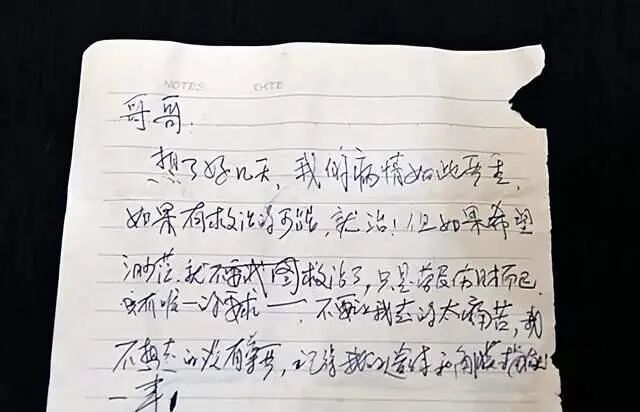 NOTES DATE
哥哥:
想了好几天,我的病情如此严重,
如果有救治的可能,就治!但如果希望
渺茫,就不要试图救治了,只是劳民伤财而已.
只有唯一的要求——不要让我走的太痛苦,我
不想走的没有尊严,记得我的遗体和角膜捐献
一事!